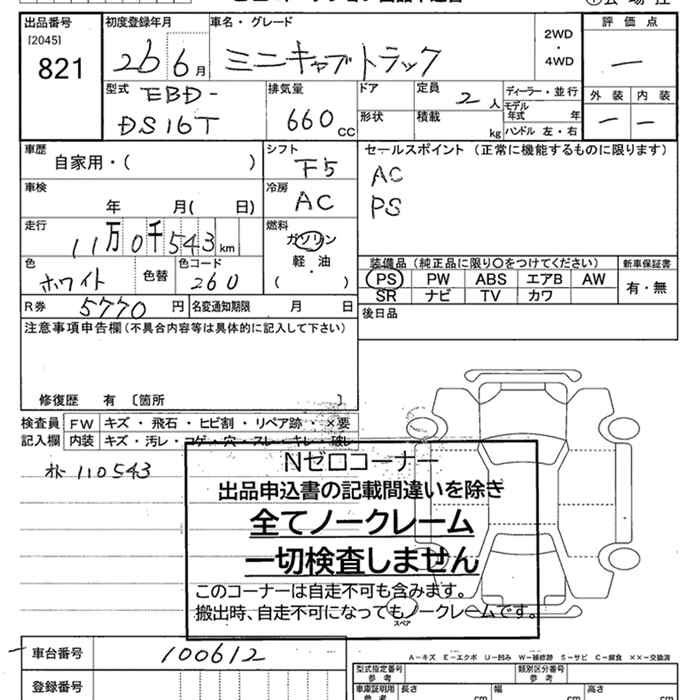 出品番号 初度登録年月 車名・グレード 評価点
[2045]
821 26 6月 ミニキャブトラック 2WD・4WD ー
型式 EBD-DS16T 排気量 660cc ドア 形状 定員 2人 積載 kg ディーラー・並行 モデル年式 年 ハンドル 左・右 外装 内装
ー ー
車歴 自家用・( ) シフト F5 セールスポイント (正常に機能するものに限ります)
車検 年 月( 日) 冷房 AC AC
PS
走行 11万0千543km 燃料 ガソリン・軽油・( )
色 ホワイト 色替 色コード 260
装備品(純正品に限り○をつけてください) 新車保証書
PS PW ABS エアB AW 有・無
SR ナビ TV カワ
R券 5770円 名変通知期限 月 日 後日品
注意事項申告欄(不具合内容等は具体的に記入して下さい)
修復歴 有 〔箇所 〕
検査員 FW キズ・飛石・ヒビ割・リペア跡・×要
記入欄 内装 キズ・汚レ・コゲ・穴・スレ・キレ・破レ
110543
Nゼロコーナー
出品申込書の記載間違いを除き
全てノークレーム
一切検査しません
このコーナーは自走不可も含みます。
搬出時、自走不可になってもノークレームです。
スペア
車台番号 100612
A-キズ E-エクボ U-凹み W-補修跡 S-サビ C-腐食 ××-交換済
登録番号 型式指定番号 参考 類別区分番号 参考
車庫証明用 参考 長さ cm 幅 cm 高さ cm